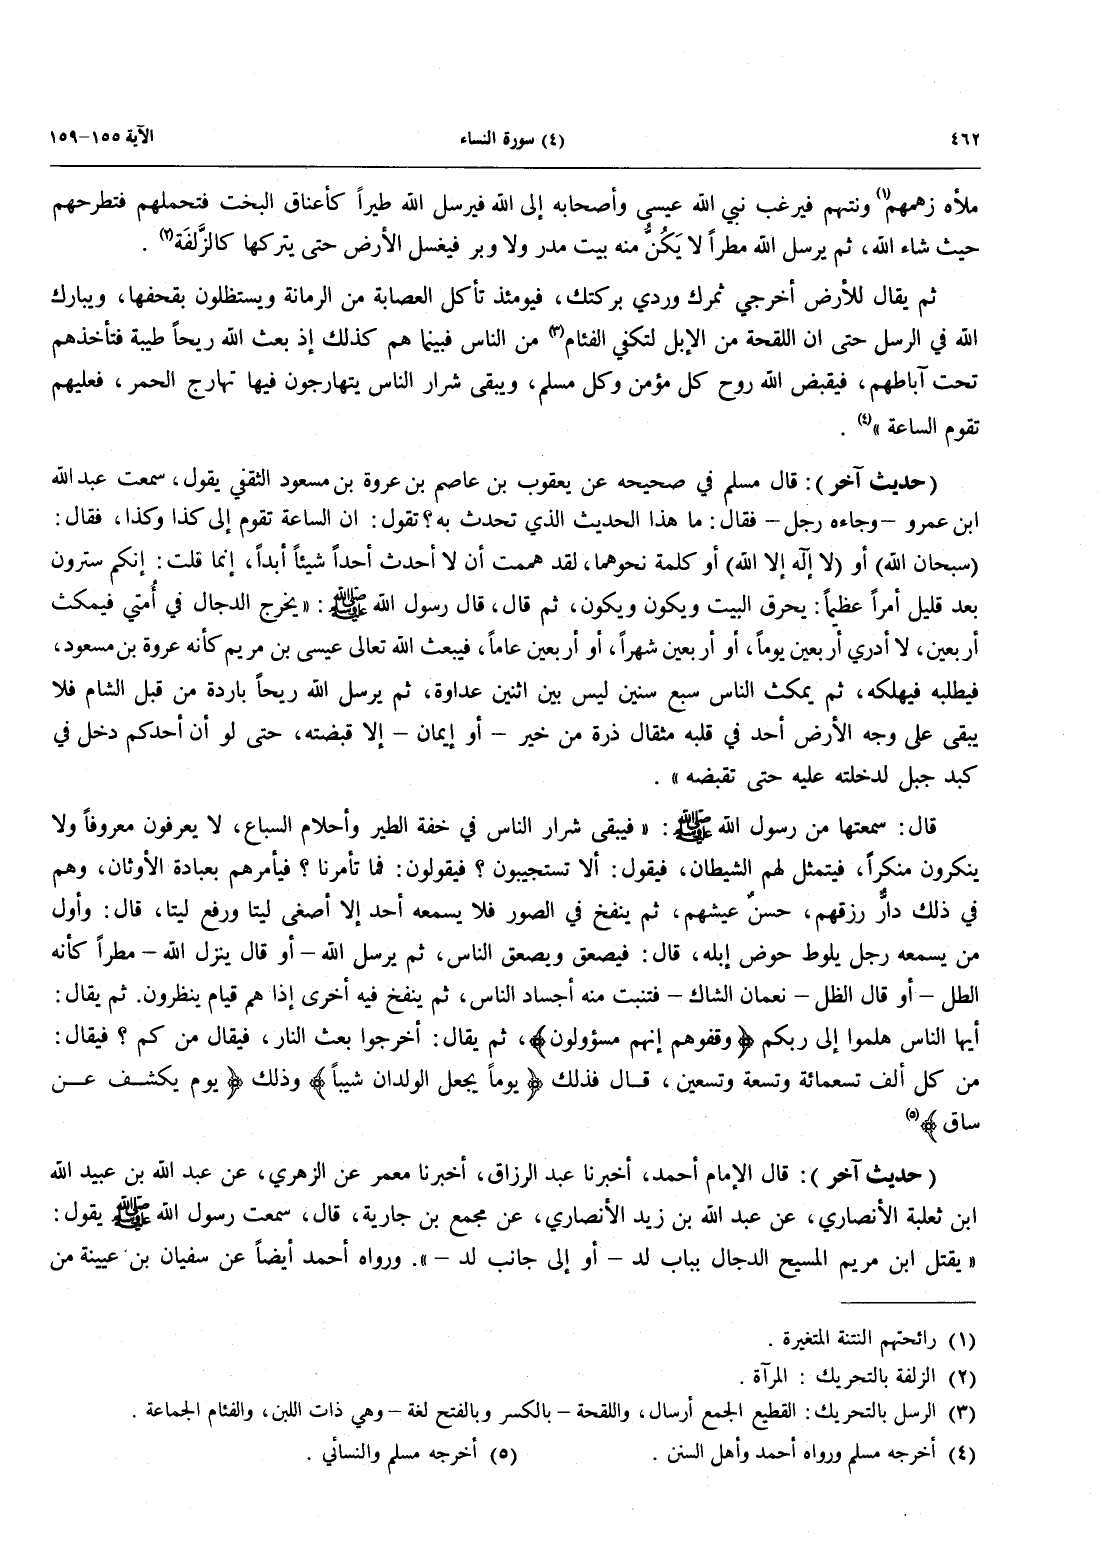 ٤٦٢ (٤) سورة النساء الآية ١٥٥-١٥٩
ملأه زهمهم(١) ونتنهم فيرغب نبي الله عيسى وأصحابه إلى الله فيرسل الله طيراً كأعناق البخت فتحملهم فتطرحهم
حيث شاء الله، ثم يرسل الله مطراً لا يَكُنُّ منه بيت مدر ولا وبر فيغسل الأرض حتى يتركها كالزَّلَفَة(٢) .
ثم يقال للأرض أخرجي ثمرك وردي بركتك، فيومئذ تأكل العصابة من الرمانة ويستظلون بقحفها، ويبارك
الله في الرسل حتى ان اللقحة من الإبل لتكفي الفئام(٣) من الناس فبينما هم كذلك إذ بعث الله ريحاً طيبة فتأخذهم
تحت آباطهم، فيقبض الله روح كل مؤمن وكل مسلم، ويبقى شرار الناس يتهارجون فيها تهارج الحمر، فعليهم
تقوم الساعة »(٤) .
( حديث آخر ): قال مسلم في صحيحه عن يعقوب بن عاصم بن عروة بن مسعود الثقفي يقول، سمعت عبد الله
ابن عمرو –وجاءه رجل– فقال: ما هذا الحديث الذي تحدث به؟ تقول: ان الساعة تقوم إلى كذا وكذا، فقال:
(سبحان الله) أو (لا إلّه إلا الله) أو كلمة نحوهما، لقد هممت أن لا أحدث أحداً شيئاً أبداً، إنما قلت: إنكم سترون
بعد قليل أمراً عظيماً: يحرق البيت ويكون ويكون، ثم قال، قال رسول الله ﷺ: « يخرج الدجال في أُمتي فيمكث
أربعين، لا أدري أربعين يوماً، أو أربعين شهراً، أو أربعين عاماً، فيبعث الله تعالى عيسى بن مريم كأنه عروة بن مسعود،
فيطلبه فيهلكه، ثم يمكث الناس سبع سنين ليس بين اثنين عداوة، ثم يرسل الله ريحاً باردة من قبل الشام فلا
يبقى على وجه الأرض أحد في قلبه مثقال ذرة من خير – أو إيمان – إلا قبضته، حتى لو أن أحدكم دخل في
كبد جبل لدخلته عليه حتى تقبضه » .
قال: سمعتها من رسول الله ﷺ: « فيبقى شرار الناس في خفة الطير وأحلام السباع، لا يعرفون معروفاً ولا
ينكرون منكراً، فيتمثل لهم الشيطان، فيقول: ألا تستجيبون ؟ فيقولون: فما تأمرنا ؟ فيأمرهم بعبادة الأوثان، وهم
في ذلك دارٌّ رزقهم، حسنٌ عيشهم، ثم ينفخ في الصور فلا يسمعه أحد إلا أصغى ليتا ورفع ليتا، قال: وأول
من يسمعه رجل يلوط حوض إبله، قال: فيصعق ويصعق الناس، ثم يرسل الله – أو قال ينزل الله – مطراً كأنه
الطل – أو قال الظل – نعمان الشاك – فتنبت منه أجساد الناس، ثم ينفخ فيه أخرى إذا هم قيام ينظرون. ثم يقال:
أيها الناس هلموا إلى ربكم ﴿وقفوهم إنهم مسؤولون﴾، ثم يقال: أخرجوا بعث النار، فيقال من كم ؟ فيقال:
من كل ألف تسعمائة وتسعة وتسعين، قـال فذلك ﴿ يوماً يجعل الولدان شيباً﴾ وذلك ﴿ يوم يكشـف عـن
ساق ﴾(٥)
( حديث آخر ): قال الإمام أحمد، أخبرنا عبد الرزاق، أخبرنا معمر عن الزهري، عن عبد الله بن عبيد الله
ابن ثعلبة الأنصاري، عن عبد الله بن زيد الأنصاري، عن مجمع بن جارية، قال، سمعت رسول الله ﷺ يقول:
« يقتل ابن مريم المسيح الدجال بباب لد – أو إلى جانب لد – ». ورواه أحمد أيضاً عن سفيان بن عيينة من
(١) رائحتهم النتنة المتغيرة .
(٢) الزلفة بالتحريك : المرآة .
(٣) الرسل بالتحريك: القطيع الجمع أرسال، واللقحة – بالكسر وبالفتح لغة – وهي ذات اللبن، والفئام الجماعة .
(٤) أخرجه مسلم ورواه أحمد وأهل السنن . (٥) أخرجه مسلم والنسائي .